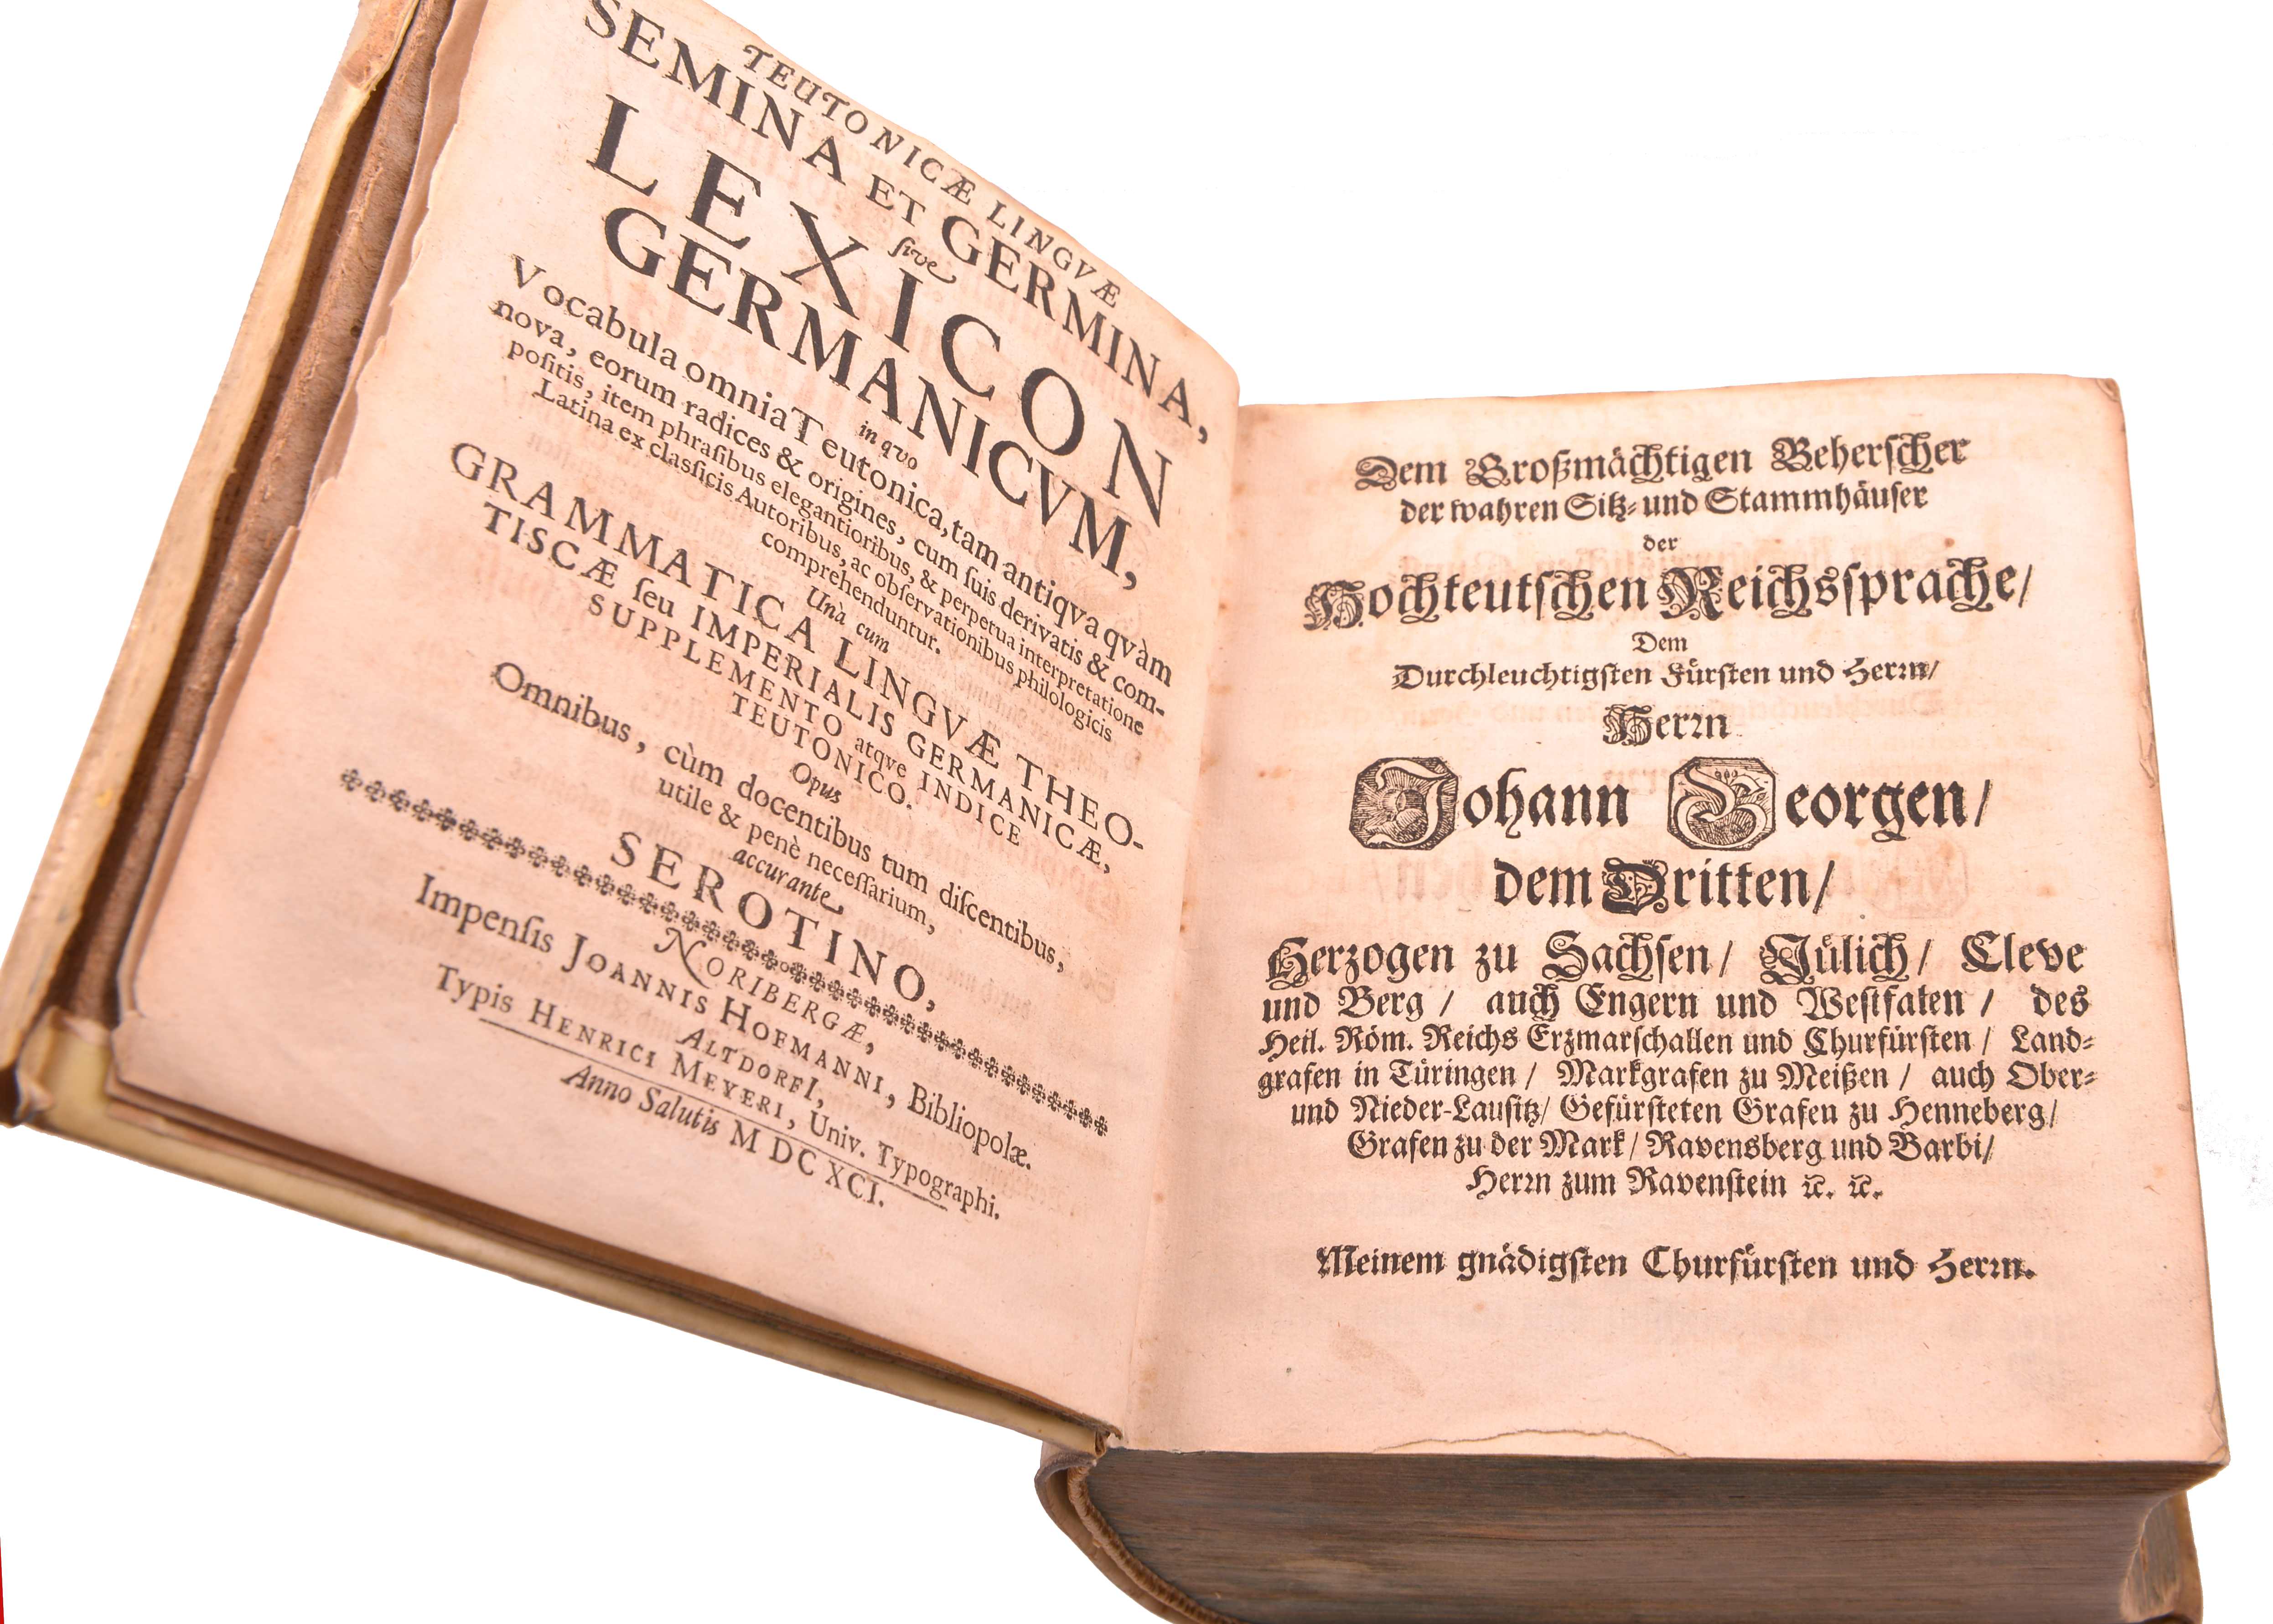 TEUTONICÆ LINGVÆ
SEMINA ET GERMINA,
ſive
LEXICON
GERMANICVM,
in qvo
Vocabula omnia Teutonica, tam antiqva qvàm
nova, eorum radices & origines, cum ſuis derivatis & com-
poſitis, item phraſibus elegantioribus, & perpetua interpretatione
Latina ex claſſicis Autoribus, ac obſervationibus philologicis
comprehenduntur.
Unà cum
GRAMMATICA LINGVÆ THEO-
TISCÆ ſeu IMPERIALIS GERMANICÆ,
SUPPLEMENTO atqve INDICE
TEUTONICO.
Opus
Omnibus, cùm docentibus tum diſcentibus,
utile & penè neceſſarium,
accurante
SEROTINO,
NORIBERGÆ,
Impenſis JOANNIS HOFMANNI, Bibliopolæ.
ALTDORFI,
Typis HENRICI MEYERI, Univ. Typographi.
Anno Salutis M DC XCI.
Dem Großmächtigen Beherſcher
der wahren Sitz- und Stammhäuſer
der
Hochteutſchen Reichsſprache/
Dem
Durchleuchtigſten Fürſten und Herꝛn/
Herꝛn
Johann Georgen/
dem Dritten/
Herzogen zu Sachſen/ Jülich/ Cleve
und Berg / auch Engern und Weſtfalen / des
Heil. Röm. Reichs Erzmarſchallen und Churfürſten / Land-
grafen in Türingen / Markgrafen zu Meißen / auch Ober-
und Nieder-Lauſitz/ Gefürſteten Grafen zu Henneberg/
Grafen zu der Mark/ Ravensberg und Barbi/
Herꝛn zum Ravenſtein ꝛc. ꝛc.
Meinem gnädigſten Churfürſten und Herꝛn.